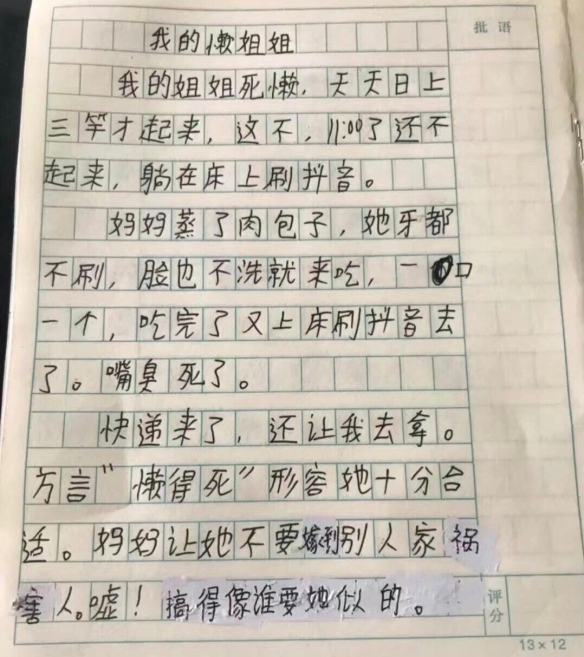 批语
我的懒姐姐
我的姐姐死懒，天天日上
三竿才起来，这不，11:00了还不
起来，躺在床上刷抖音。
妈妈蒸了肉包子，她牙都
不刷，脸也不洗就来吃，一口
一个，吃完了又上床刷抖音去
了。嘴臭死了。
快递来了，还让我去拿。
方言“懒得死”形容她十分合
适。妈妈让她不要嫁到别人家祸
害人。嘘！搞得像谁要她似的。
评分
13×12